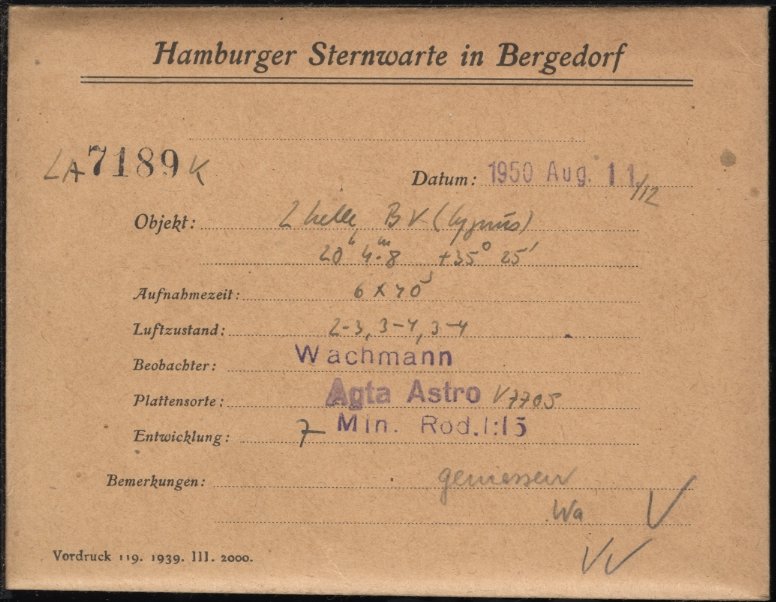 Hamburger Sternwarte in Bergedorf
LA 7189 K
Datum: 1950 Aug. 11/12
Objekt: 2 helle BV (Cygnus)
20ʰ 4ᵐ.8 +35° 25'
Aufnahmezeit: 6 x 40
Luftzustand: 2-3, 3-4, 3-4
Beobachter: Wachmann
Plattensorte: Agfa Astro V7705
Entwicklung: 7 Min. Rod. 1:15
Bemerkungen: gemessen
Wa V
VV
Vordruck 119. 1939. III. 2000.